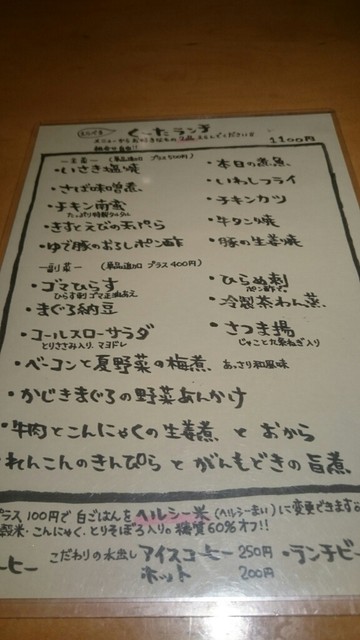 くーたランチ
メニューからお好きなもの2品えらんでください
1100円
ー主菜ー (単品追加 プラス500円)
・いさき塩焼
・本日の煮魚
・さば味噌煮
・いわしフライ
・チキン南蛮
たっぷり特製タルタル
・チキンカツ
・きすとえびの天ぷら
・牛タン焼
・ゆで豚のおろしポン酢
・豚の生姜焼
ー副菜ー (単品追加 プラス400円)
・ゴマひらす
ひらす刺ゴマ正油あえ
・ひらめ刺
ポン酢で
・まぐろ納豆
・冷製茶わん蒸
・コールスローサラダ
とりささみ入り、マヨドレ
・さつま揚
じゃことた玉ねぎ入り
・ベーコンと夏野菜の梅煮、あっさり和風味
・かじきまぐろの野菜あんかけ
・牛肉とこんにゃくの生姜煮 と おから
・れんこんのきんぴら と がんもどきの旨煮
プラス100円で白ごはんをヘルシー米(ヘルシーまい)に変更できます
穀米・こんにゃく、とりそぼろ入りの糖質60%オフ!!
ーヒー こだわりの水出し アイスコーヒー 250円 ・ランチビー
ホット 200円